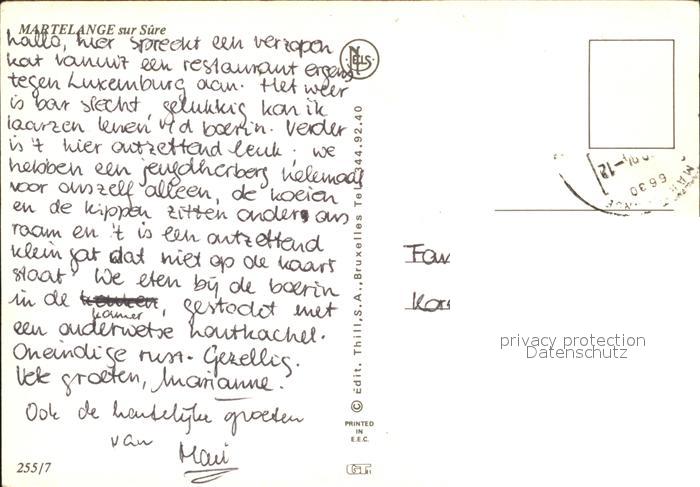 MARTELANGE sur Sûre
hallo, hier spreekt een verzopen
kat vanuit een restaurant ergens
tegen Luxemburg aan. Het weer
is bar slecht, gelukkig kan ik
laarzen lenen v/d boerin. Verder
is 't hier ontzettend leuk. we
hebben een jeugdherberg helemaal
voor onszelf alleen, de koeien
en de kippen zitten onder ons
raam en 't is een ontzettend
klein gat dat niet op de kaart
staat. We eten bij de boerin
in de keuken, gestookt met
kamer
een ouderwetse houtkachel.
Oneindige rust. Gezellig.
Vele groeten, Marianne.
Ook de hartelijke groeten
van
255/7
NELS
© Édit. Thill, S.A., Bruxelles Tel. 44.92.40
PRINTED
IN
E.E.C.
6630
Fam
privacy protection
Datenschutz